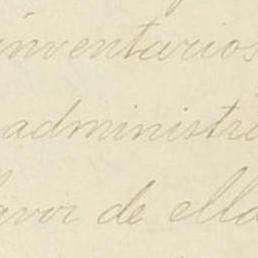 inventarios
administra
favor de ella